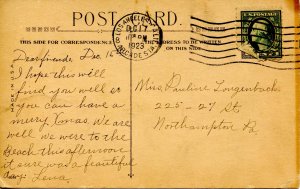 POST CARD.
LOS ANGELES, CAL.
DEC 17
1923
ARCADE STA.
U.S. POSTAGE
THIS SIDE FOR CORRESPONDENCE
ADDRESS TO BE WRITTEN
ON THIS SIDE
MADE IN U.S.A.
Dear friends Dec. 16
I hope this will
find you well so
you can have a
merry Xmas. We are
well we were to the
beach this afternoon
it sure was a beautiful
day. Lena
Miss Pauline Lungenbach
225 - 27 St
Northampton Pa